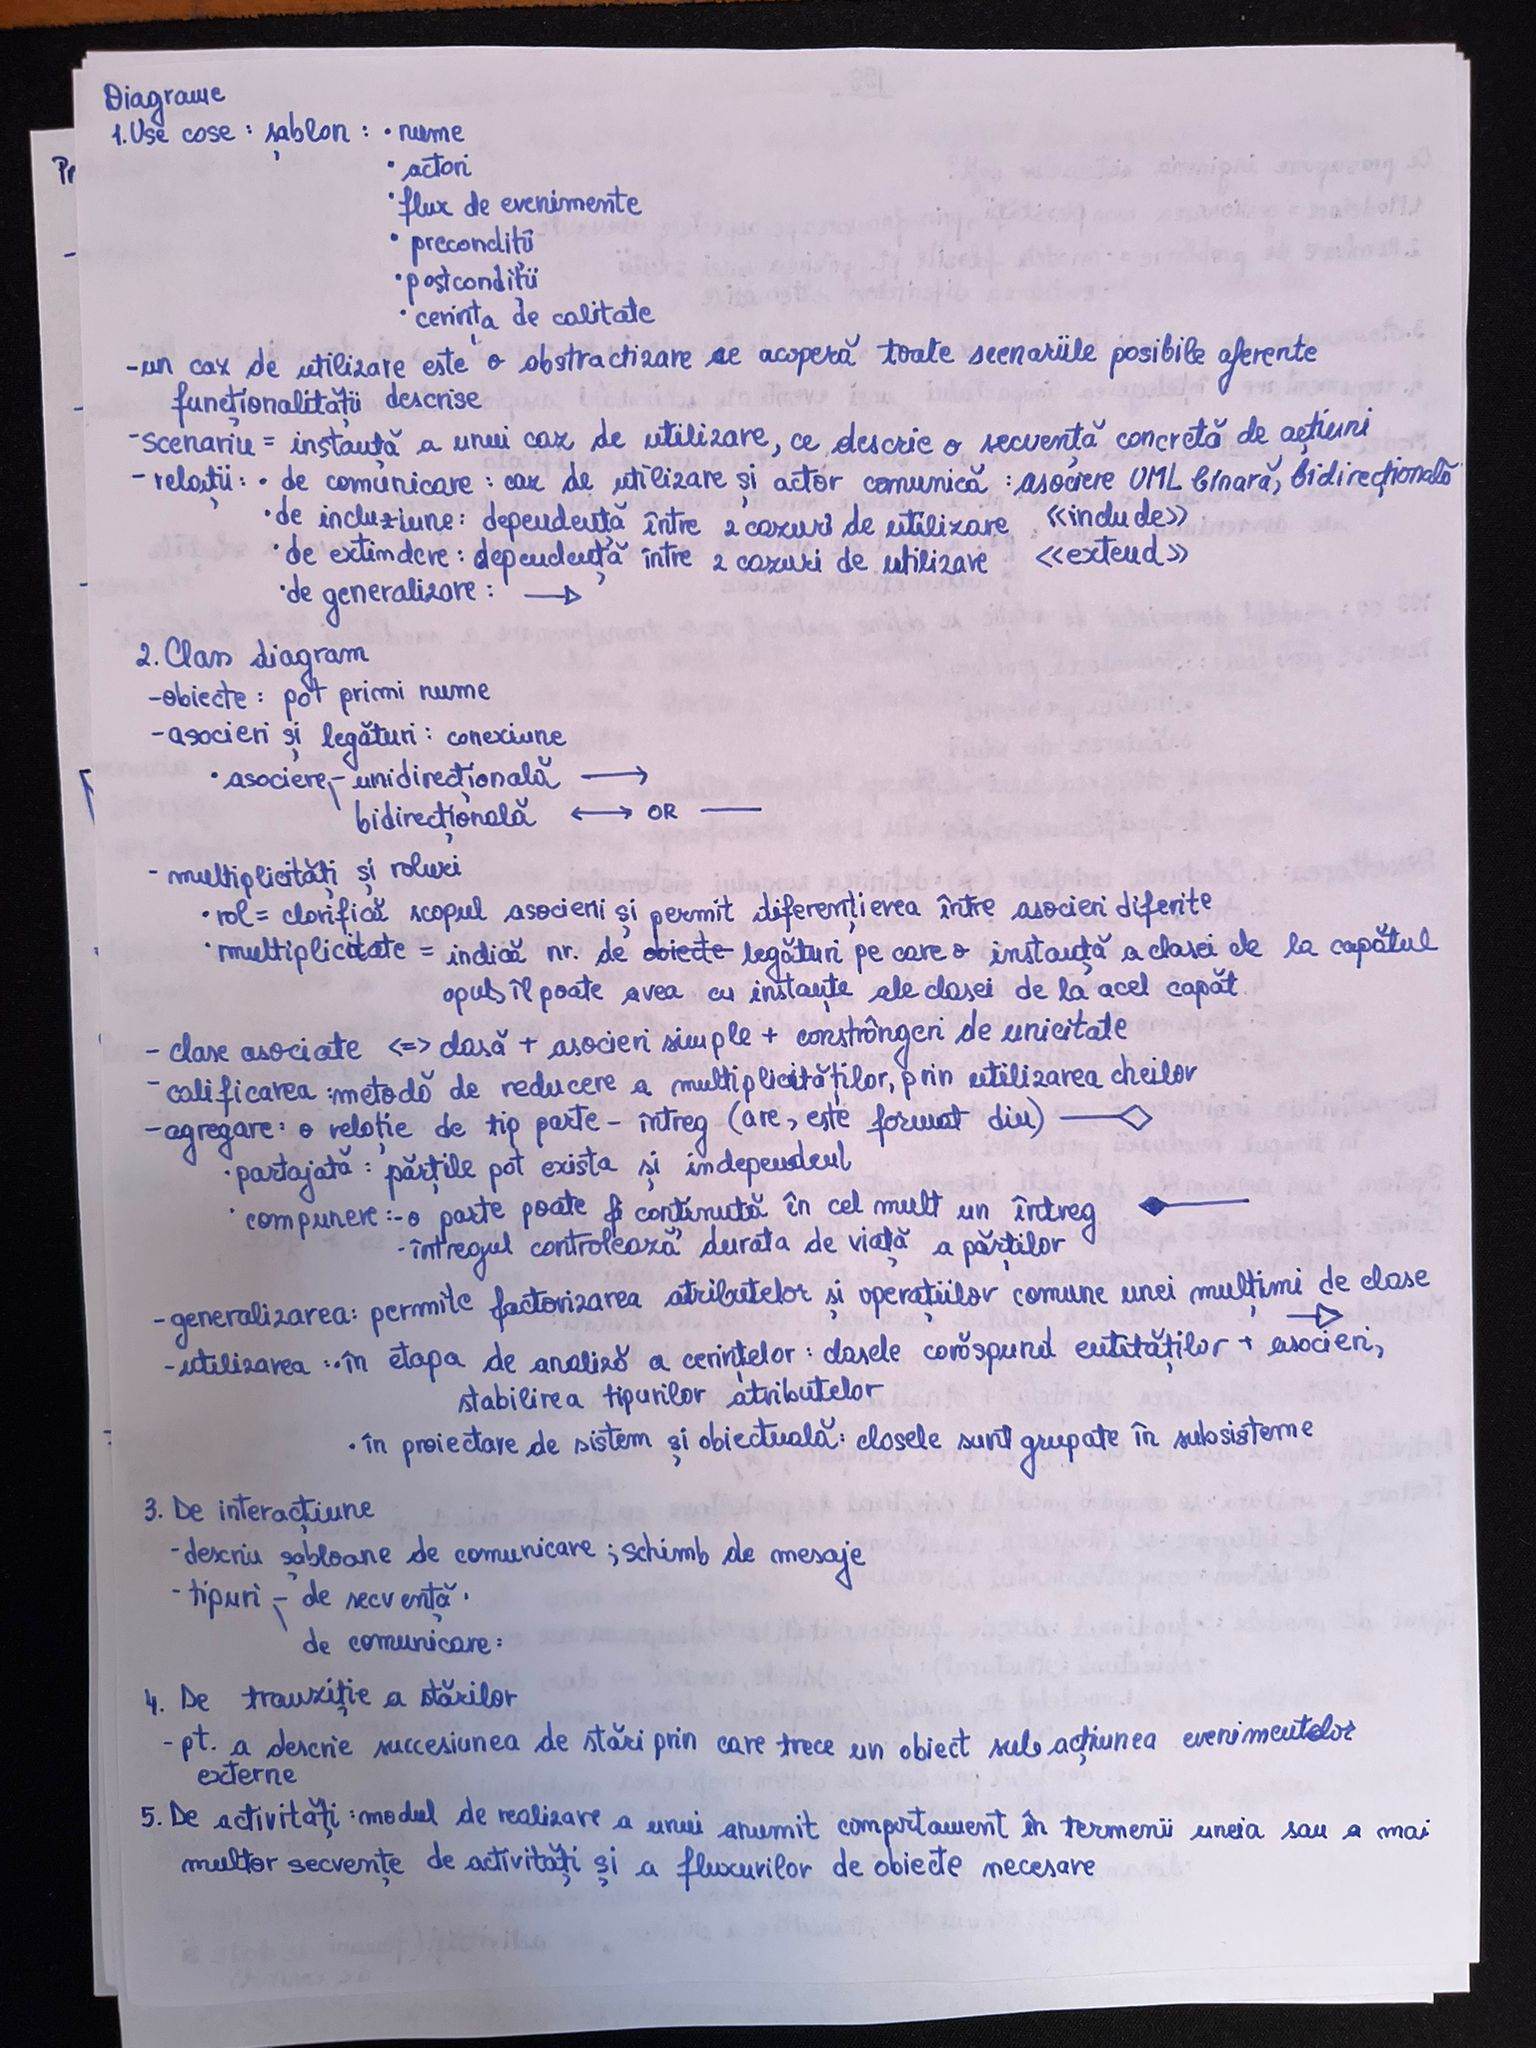 Diagrame
1. Use case : șablon : • nume
• actori
• flux de evenimente
• precondiții
• postcondiții
• cerința de calitate
- un caz de utilizare este o abstractizare ce acoperă toate scenariile posibile aferente
funcționalității descrise
- scenariu = instanță a unui caz de utilizare, ce descrie o secvență concretă de acțiuni
- relații : • de comunicare : caz de utilizare și actor comunică : asociere UML binară, bidirecțională
• de incluziune : dependență între 2 cazuri de utilizare <<include>>
• de extindere : dependență între 2 cazuri de utilizare <<extend>>
• de generalizare :
2. Class diagram
- obiecte : pot primi nume
- asocieri și legături : conexiune
• asociere - unidirecțională
bidirecțională OR
- multiplicități și roluri
• rol = clarifică scopul asocierii și permit diferențierea între asocieri diferite
• multiplicitate = indică nr. de obiecte legături pe care o instanță a clasei de la capătul
opus îl poate avea cu instanțe ale clasei de la acel capăt
- clase asociate <=> clasă + asocieri simple + constrângeri de unicitate
- calificarea : metodă de reducere a multiplicităților, prin utilizarea cheilor
- agregare : o relație de tip parte - întreg (are, este format din)
• partajată : părțile pot exista și independent
• compunere : - o parte poate fi conținută în cel mult un întreg
- întregul controlează durata de viață a părților
- generalizarea : permite factorizarea atributelor și operațiilor comune unei mulțimi de clase
- utilizarea : • în etapa de analiză a cerințelor : clasele corăspund entităților + asocieri,
stabilirea tipurilor atributelor
• în proiectare de sistem și obiectuală : clasele sunt grupate în subsisteme
3. De interacțiune
- descriu șabloane de comunicare ; schimb de mesaje
- tipuri - de secvență •
de comunicare :
4. De tranziție a stărilor
- pt. a descrie succesiunea de stări prin care trece un obiect sub acțiunea evenimentelor
externe
5. De activități : modul de realizare a unui anumit comportament în termenii uneia sau a mai
multor secvențe de activități și a fluxurilor de obiecte necesare